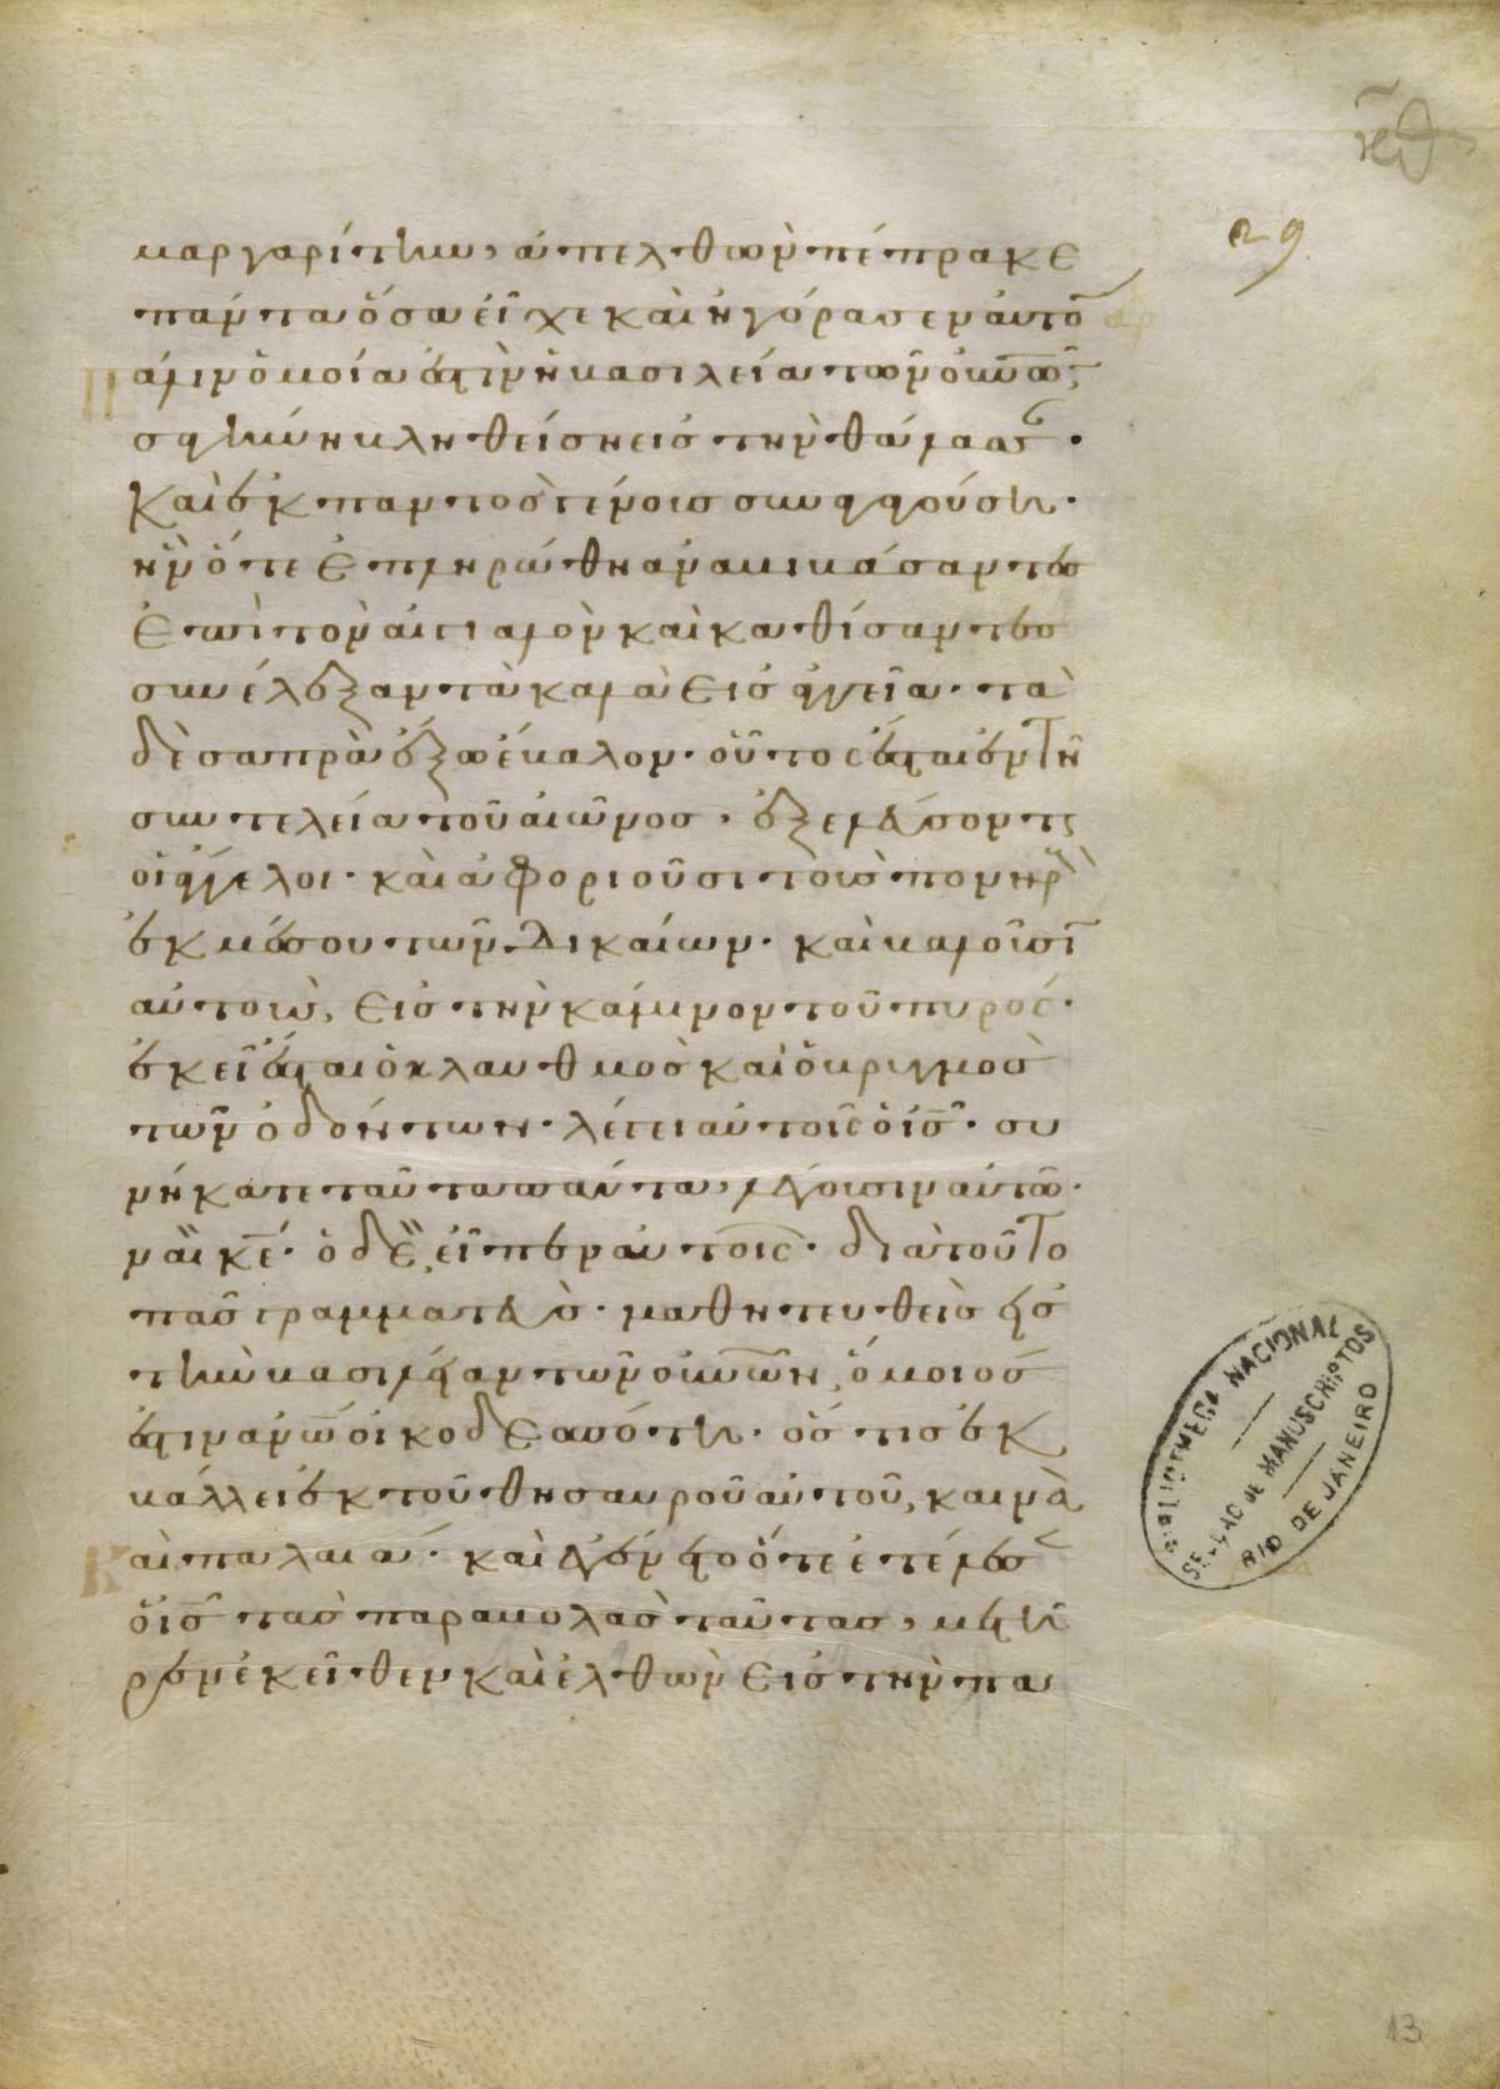 κθ
29
μαργαρίτην, ἀπελθὼν πέπρακε
πάντα ὅσα εἶχε καὶ ἠγόρασεν αὐτὸ
Πάλιν ὁμοία ἐστὶν ἡ βασιλεία τῶν οὐνῶν
σαγήνη βληθείση εἰς τὴν θάλασς.
καὶ ἐκ παντὸς γένους συναγαγούση.
ἣν ὅτε ἐπληρώθη ἀναβιβάσαντες
ἐπὶ τὸν αἰγιαλὸν καὶ καθίσαντες
συνέλεξαν τὰ καλὰ εἰς ἀγγεῖα. τὰ
δὲ σαπρὰ ἔξω ἔβαλον. οὕτος ἔσται ἐν τῆ
συντελεία τοῦ αἰῶνος. ἐξελεύσοντ
οἱ ἄγγελοι. καὶ ἀφοριοῦσι τοὺς πονηρ
ἐκ μέσου τῶν δικαίων. καὶ βαλοῦσι
αὐτοὺς, εἰς τὴν κάμινον τοῦ πυρός.
ἐκεῖ ἔσται ὁ κλαυθμὸς καὶ ὁ βριγμὸς
τῶν ὀδόντων. λέγει αὐτοῖς ὁ ις. συ
νήκατε ταῦτα πάντα, λέγουσιν αὐτῶ.
ναὶ κε. ὁ δὲ εἶπεν αὐτοῖς. διὰ τοῦτο
πᾶς γραμματεὺς. μαθητευθεὶς εἰς
τὴν βασιλείαν τῶν οὐνῶν, ὅμοιός
ἐστιν ἀνω οἰκοδεσπότη. ὅς τις ἐκ
βάλλει ἐκ τοῦ θησαυροῦ αὐτοῦ, καινὰ
καὶ παλαιά. καὶ ἐγένετο ὅτε ἐτέλεσ
ὁ ις τὰς παραβολὰς ταύτας, μετῆ
ρεν ἐκεῖθεν καὶ ἐλθὼν εἰς τὴν πα
BIBLIOTHECA NACIONAL
SECÇÃO DE MANUSCRIPTOS
RIO DE JANEIRO
13